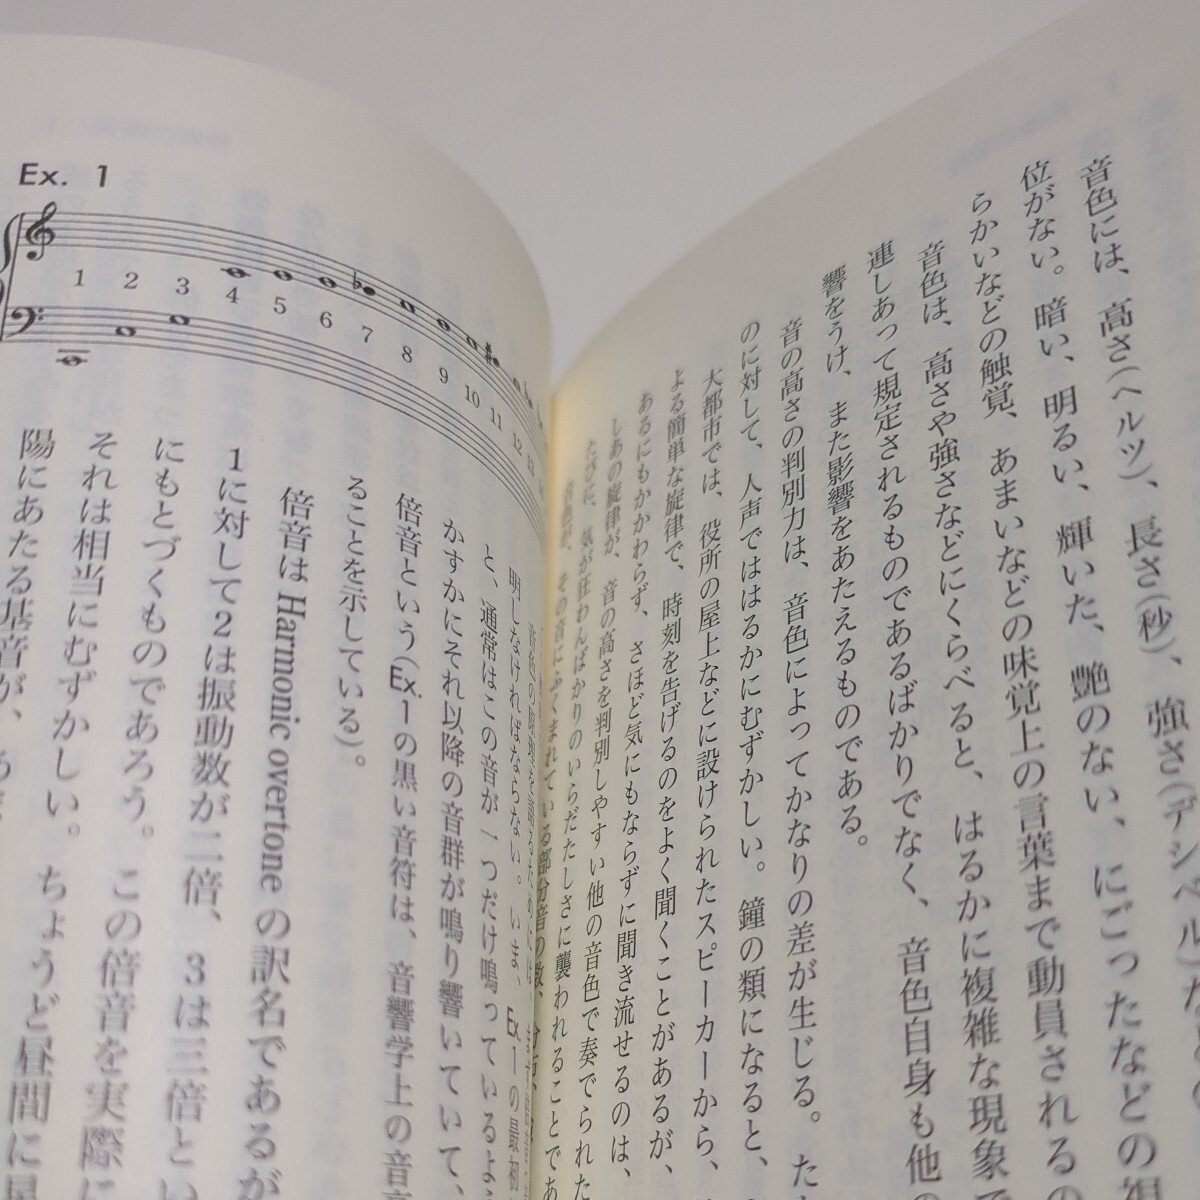 音色には、高さ(ヘルツ)、長さ(秒)、強さ(デシベル)
位がない。暗い、明るい、輝いた、艶のない、にごったなどの
らかいなどの触覚、あまいなどの味覚上の言葉まで動員されるの
音色は、高さや強さなどにくらべると、はるかに複雑な現象で
連しあって規定されるものであるばかりでなく、音色自身も他の
響をうけ、また影響をあたえるものである。
音の高さの判別力は、音色によってかなりの差が生じる。た
のに対して、人声でははるかにむずかしい。鐘の類になると、
大都市では、役所の屋上などに設けられたスピーカーから、
よる簡単な旋律で、時刻を告げるのをよく聞くことがあるが、
あるにもかかわらず、さほど気にもならずに聞き流せるのは、
しあの旋律が、音の高さを判別しやすい他の音色で奏でられた
たびに、気が狂わんばかりのいらだたしさに襲われることであ
Ex. 1
1 2 3 4 5 6 7 8 9 10 11 12 13
音色が、その音にふくまれている部分音の数、
明しなければならない。いま、Ex.1の最初
と、通常はこの音が一つだけ鳴っているよう
かすかにそれ以降の音群が鳴り響いていて、
倍音という(Ex.1の黒い音符は、音響学上の音
ることを示している)。
倍音は Harmonic overtone の訳名であるが
1に対して2は振動数が二倍、3は三倍とい
にもとづくものであろう。この倍音を実際に
それは相当にむずかしい。ちょうど昼間に
陽にあたる基音が、